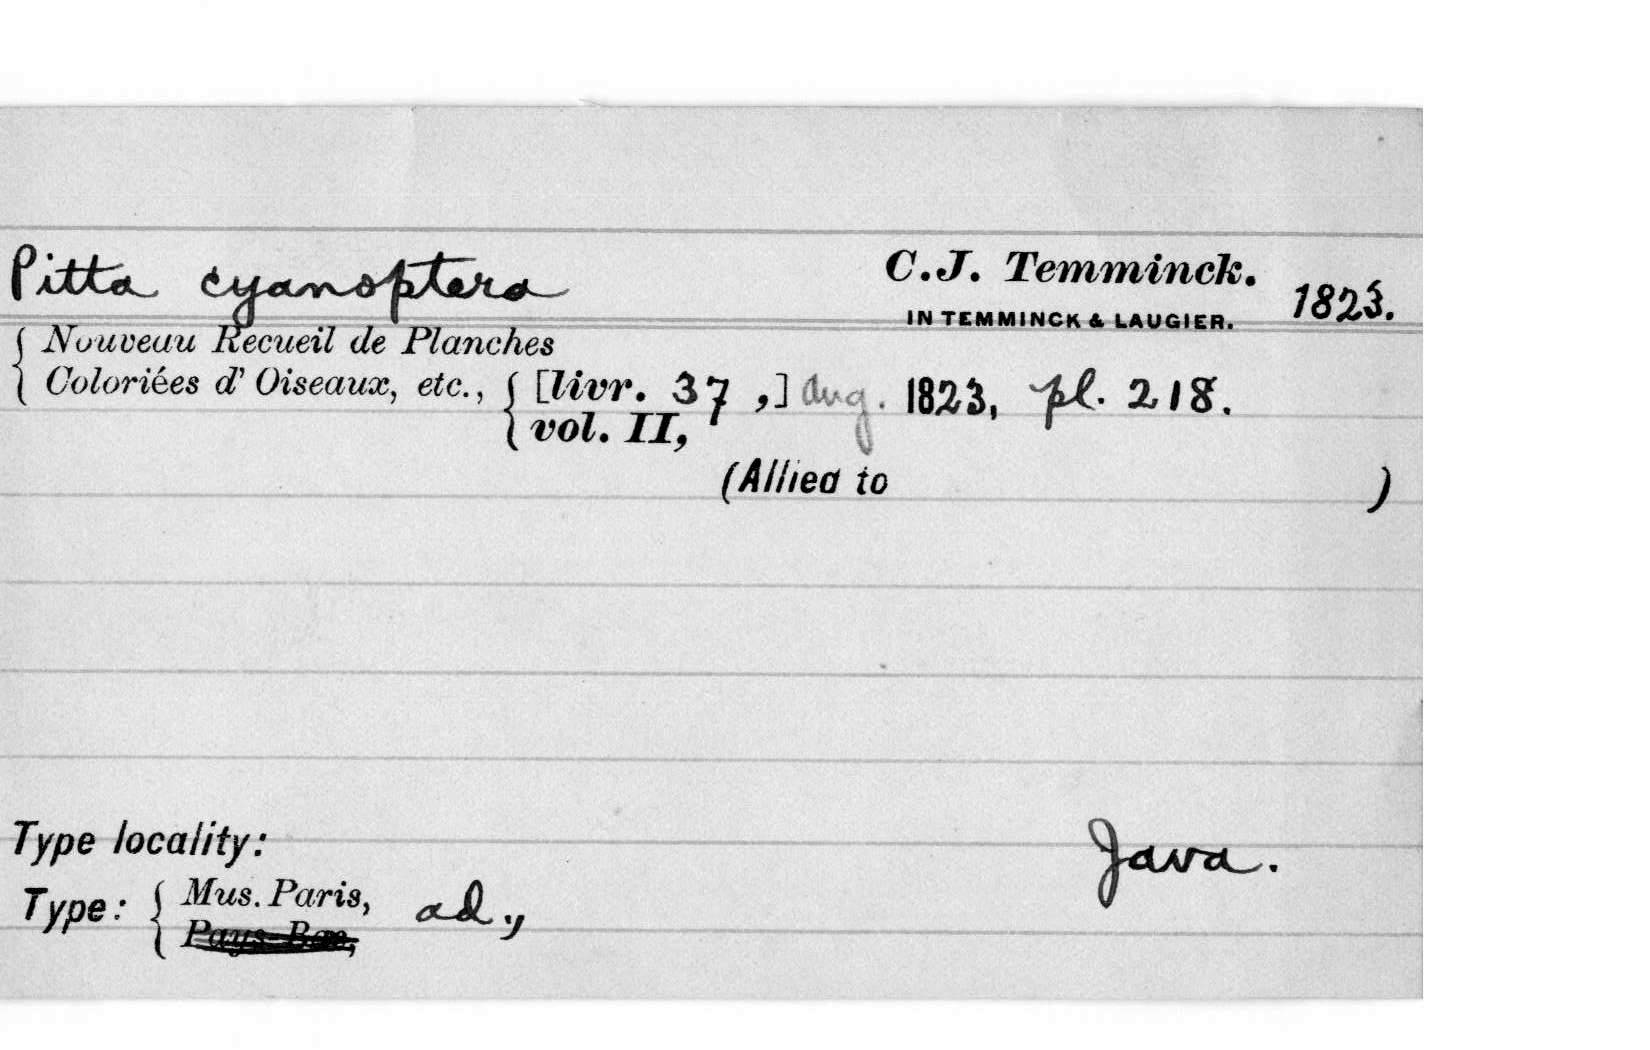 Pitta cyanoptera C.J. Temminck. 1823.
IN TEMMINCK & LAUGIER.
Nouveau Recueil de Planches
Coloriées d'Oiseaux, etc., [livr. 37 ,] Aug. 1823, pl. 218.
vol. II,
(Allied to )
Type locality: Java.
Type: Mus. Paris, ad.,
Pays-Bas,